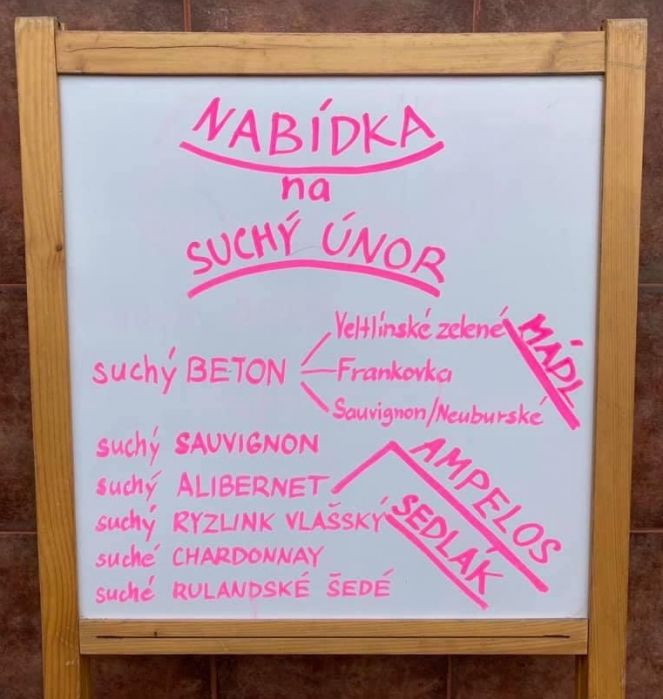 NABÍDKA
na
SUCHÝ ÚNOR
suchý BETON
Veltlínské zelené
Frankovka
Sauvignon/Neuburské
MÁDL
suchý SAUVIGNON
suchý ALIBERNET
AMPELOS
suchý RYZLINK VLAŠSKÝ
SEDLÁK
suché CHARDONNAY
suché RULANDSKÉ ŠEDÉ